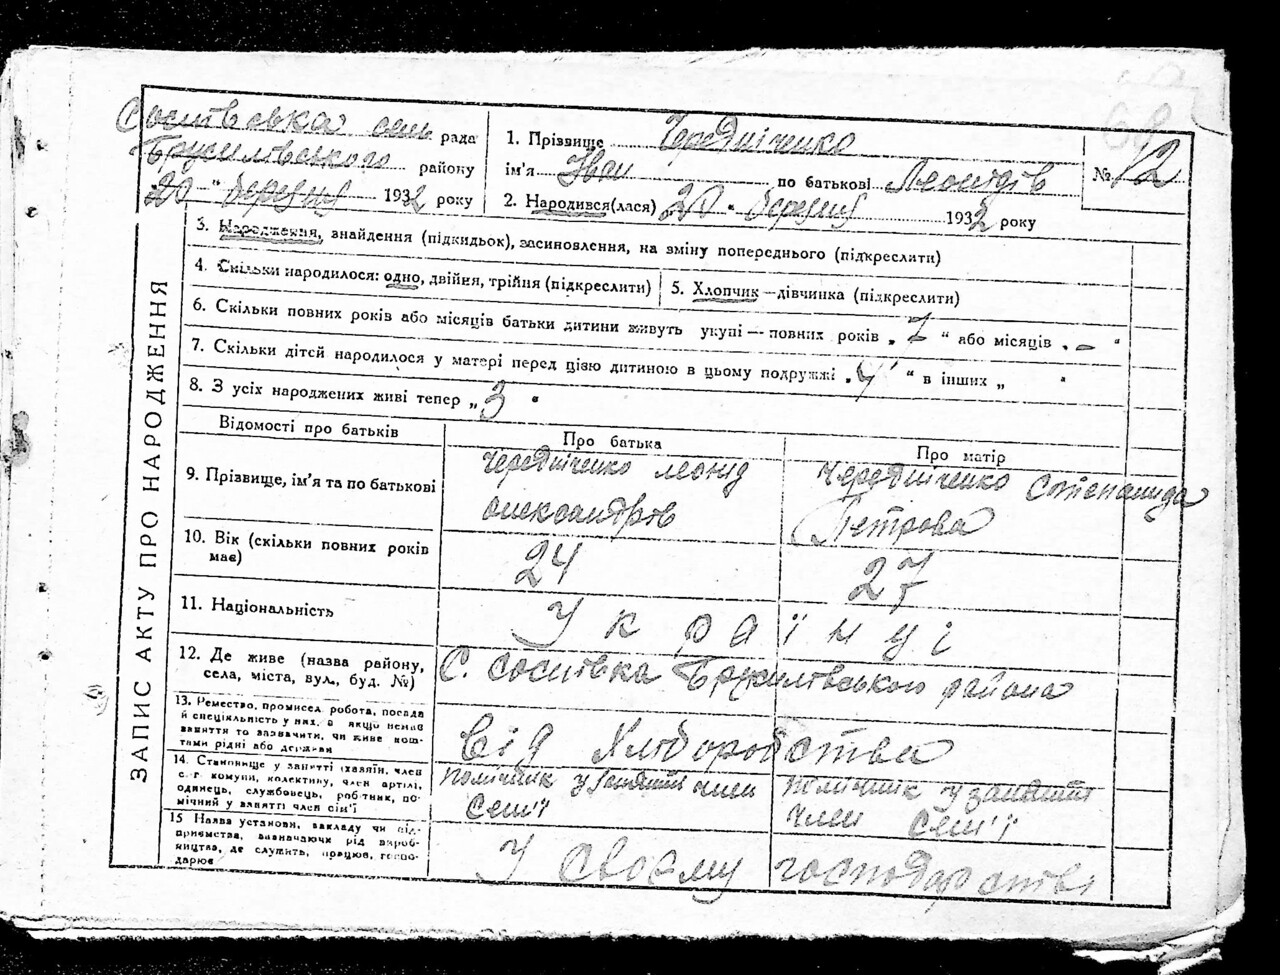 Соснівська сель рада
Брусилівського району
20 " березня 1932 року
1. Прізвище Чередніченко
ім'я Іван по батькові Леонідів
2. Народився(лася) 20 " березня 1932 року
№ 12
68
ЗАПИС АКТУ ПРО НАРОДЖЕННЯ
3. Народження, знайдення (підкидьок), засиновлення, на зміну попереднього (підкреслити)
4. Скільки народилося: одно, двійня, трійня (підкреслити)
5. Хлопчик—дівчинка (підкреслити)
6. Скільки повних років або місяців батьки дитини живуть укупі — повних років „ 7 " або місяців „ – "
7. Скільки дітей народилося у матері перед цією дитиною в цьому подружжі „ 4 " в інших „ "
8. З усіх народжених живі тепер „ 3 "
Відомості про батьків
Про батька
Про матір
9. Прізвище, ім'я та по батькові
Чередніченко Леонид
Олександрів
Чередніченко Степанида
Петрова
10. Вік (скільки повних років
має)
24
27
11. Національність
Українці
12. Де живе (назва району,
села, міста, вул., буд. №)
С. Соснівка Брусилівського района
13. Ремество, промисел, робота, посада
й спеціяльність у них, а якщо немає
заняття то зазначити, чи живе кош-
тами рідні або держави
Від Хліборобства
14. Становище у занятті (хазяїн, член
с.-г. комуни, колективу, член артілі,
одинець, службовець, робітник, по-
мічний у занятті член сім'ї)
помічник у занятті член
сем'ї
помічник у занятті
член сем'ї
15 Назва установи, закладу чи під-
приємства, зазначаючи рід вироб-
ництва, де служить, працює, госпо-
дарює
У своєму господарстві